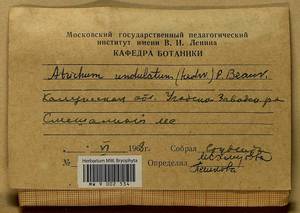 Московский государственный педагогический
институт имени В. И. Ленина
КАФЕДРА БОТАНИКИ
Atrichum undulatum (Hedw.) P. Beauv.
Калужская обл. Угодско-Заводск р-н
Смешанный лес
VI 196 Собрал
№ Определила
Herbarium MW, Bryophyta
MW 9 002 534